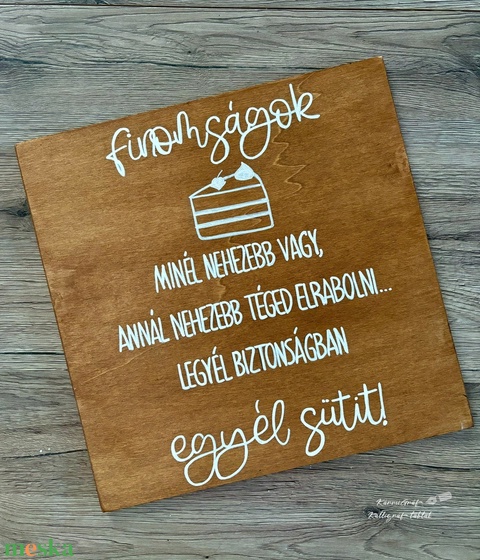 finomságok
MINÉL NEHEZEBB VAGY,
ANNÁL NEHEZEBB TÉGED ELRABOLNI...
LEGYÉL BIZTONSÁGBAN
egyél sütit!
meska